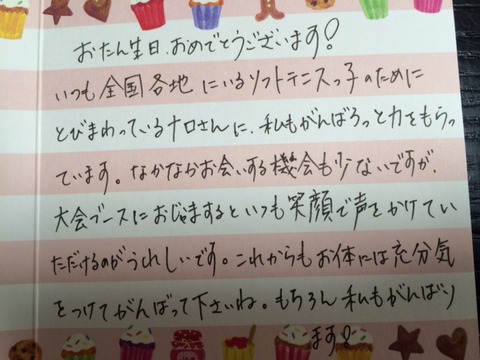 おたん生日、おめでとうございます!
いつも全国各地にいるソフトテニスっ子のために
とびまわっているナロさんに、私もがんばろっと力をもらっ
ています。なかなかお会いする機会も少ないですが、
大会ブースにおじゃますると、いつも笑顔で声をかけてい
ただけるのがうれしいです。これからもお体には充分気
をつけてがんばって下さいね。もちろん私もがんばり
ます!